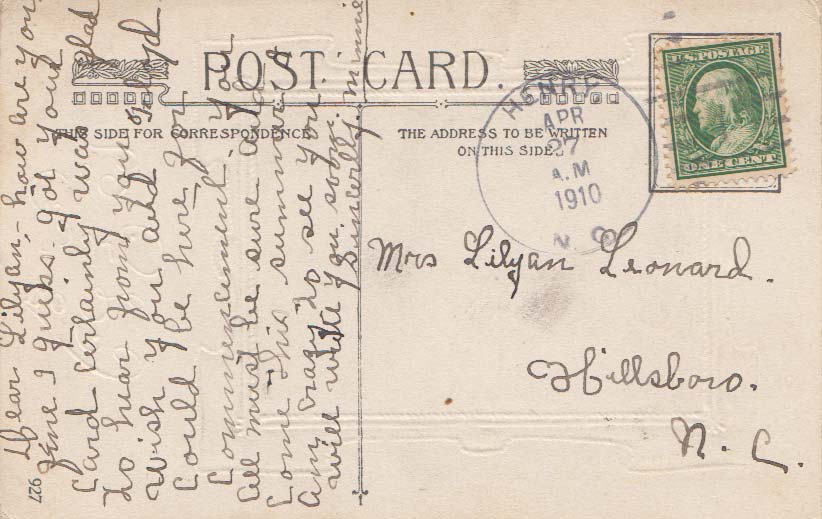 POST CARD.
THIS SIDE FOR CORRESPONDENCE
THE ADDRESS TO BE WRITTEN
ON THIS SIDE
HENRY
APR
27
A.M
1910
N. C.
U.S. POSTAGE
ONE CENT
Dear Lilyan,- how are you
fine I guess. Got your
card certainly was glad
to hear from you
wish you and
could be here for
Commencement. You
all must be sure and
come this summer.
Am crazy to see you
will write you soon.
Sincerely, Minnie
Mrs Lilyan Leonard.
Hillsboro.
N. C.
927